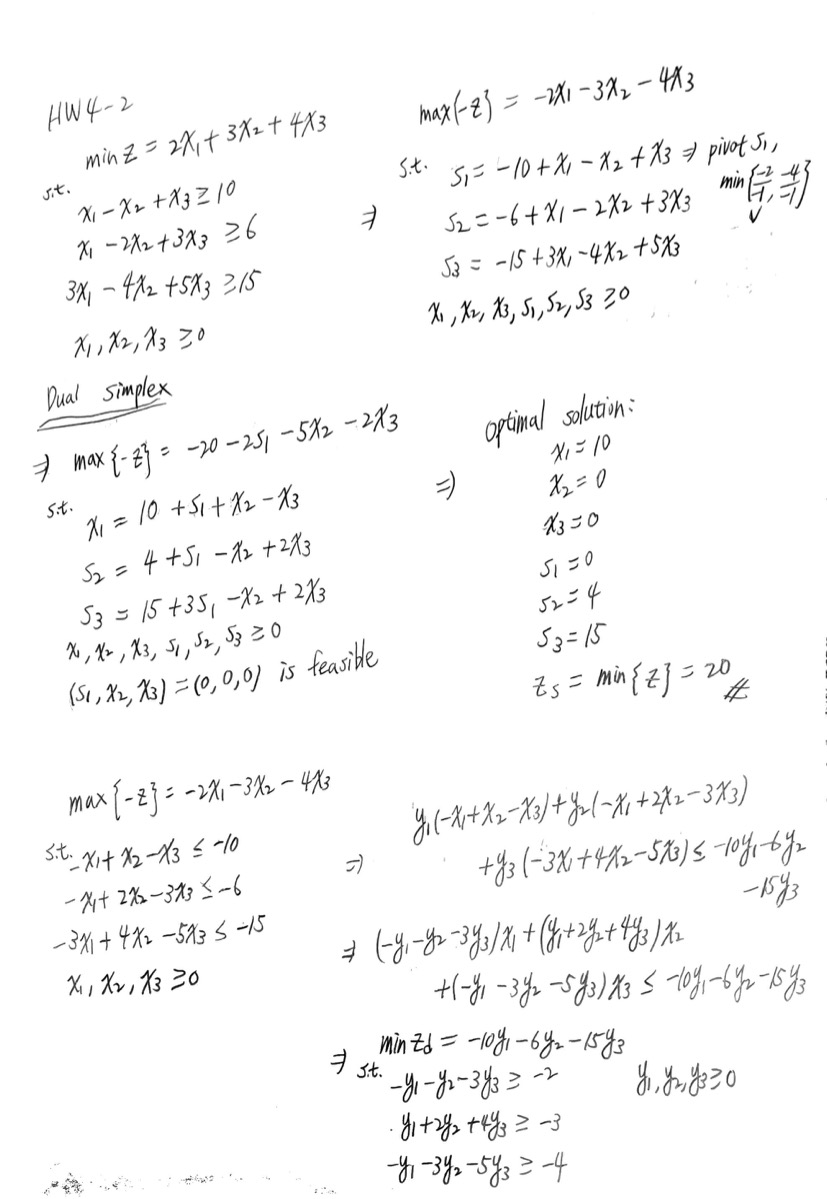 HW4-2
min Z = 2X₁ + 3X₂ + 4X₃
s.t.
X₁ - X₂ + X₃ ≥ 10
X₁ - 2X₂ + 3X₃ ≥ 6
3X₁ - 4X₂ + 5X₃ ≥ 15
X₁, X₂, X₃ ≥ 0
max{-Z} = -2X₁ - 3X₂ - 4X₃
⇒ s.t. S₁ = -10 + X₁ - X₂ + X₃ ⇒ pivot S₁,
min{-2/-1, -4/-1} ✓
S₂ = -6 + X₁ - 2X₂ + 3X₃
S₃ = -15 + 3X₁ - 4X₂ + 5X₃
X₁, X₂, X₃, S₁, S₂, S₃ ≥ 0
Dual simplex
⇒ max{-Z} = -20 - 2S₁ - 5X₂ - 2X₃
s.t.
X₁ = 10 + S₁ + X₂ - X₃
S₂ = 4 + S₁ - X₂ + 2X₃
S₃ = 15 + 3S₁ - X₂ + 2X₃
X₁, X₂, X₃, S₁, S₂, S₃ ≥ 0
(S₁, X₂, X₃) = (0, 0, 0) is feasible
⇒ optimal solution:
X₁ = 10
X₂ = 0
X₃ = 0
S₁ = 0
S₂ = 4
S₃ = 15
Zs = min{Z} = 20 #
max{-Z} = -2X₁ - 3X₂ - 4X₃
s.t. -X₁ + X₂ - X₃ ≤ -10
-X₁ + 2X₂ - 3X₃ ≤ -6
-3X₁ + 4X₂ - 5X₃ ≤ -15
X₁, X₂, X₃ ≥ 0
⇒ y₁(-X₁ + X₂ - X₃) + y₂(-X₁ + 2X₂ - 3X₃)
+ y₃(-3X₁ + 4X₂ - 5X₃) ≤ -10y₁ - 6y₂
-15y₃
⇒ (-y₁ - y₂ - 3y₃)X₁ + (y₁ + 2y₂ + 4y₃)X₂
+ (-y₁ - 3y₂ - 5y₃)X₃ ≤ -10y₁ - 6y₂ - 15y₃
⇒ min Zd = -10y₁ - 6y₂ - 15y₃
s.t. -y₁ - y₂ - 3y₃ ≥ -2 y₁, y₂, y₃ ≥ 0
y₁ + 2y₂ + 4y₃ ≥ -3
-y₁ - 3y₂ - 5y₃ ≥ -4